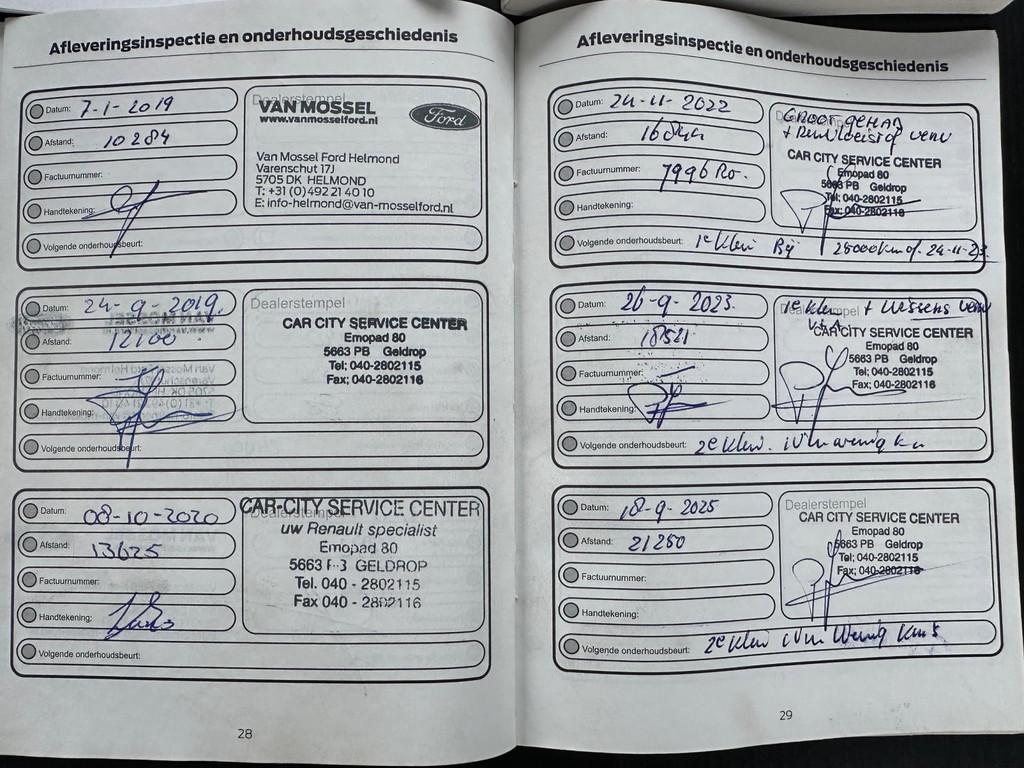 Afleveringsinspectie en onderhoudsgeschiedenis
Datum: 7-1-2019
Afstand: 10284
Factuurnummer:
Handtekening:
Volgende onderhoudsbeurt:
Dealerstempel
VAN MOSSEL
www.vanmosselford.nl
Ford
Van Mossel Ford Helmond
Varenschut 17J
5705 DK HELMOND
T: +31 (0)492 21 40 10
E: info-helmond@van-mosselford.nl
Datum: 24-9-2019
Afstand: 12100
Factuurnummer:
Handtekening:
Volgende onderhoudsbeurt:
Dealerstempel
CAR CITY SERVICE CENTER
Emopad 80
5663 PB Geldrop
Tel; 040-2802115
Fax; 040-2802116
Datum: 08-10-2020
Afstand: 13625
Factuurnummer:
Handtekening:
Volgende onderhoudsbeurt:
Dealerstempel
CAR-CITY SERVICE CENTER
uw Renault specialist
Emopad 80
5663 GELDROP
Tel. 040 - 2802115
Fax 040 - 2802116
28
Afleveringsinspectie en onderhoudsgeschiedenis
Datum: 24-11-2022
Afstand:
Factuurnummer:
Handtekening:
Volgende onderhoudsbeurt: 1e klein Bij 25000km of 24-11-23
GROOT
CAR CITY SERVICE CENTER
Emopad 80
5663 PB Geldrop
Tel; 040-2802115
Fax; 040-2802116
Datum: 26-9-2023
Afstand: 18521
Factuurnummer:
Handtekening:
Volgende onderhoudsbeurt: 2e klein. ivm weinig km
1e klein +
CAR CITY SERVICE CENTER
Emopad 80
5663 PB Geldrop
Tel; 040-2802115
Fax; 040-2802116
Datum: 18-9-2025
Afstand: 21250
Factuurnummer:
Handtekening:
Volgende onderhoudsbeurt: 2e klein ivm weinig km's
Dealerstempel
CAR CITY SERVICE CENTER
Emopad 80
5663 PB Geldrop
Tel; 040-2802115
Fax; 040-2802116
29